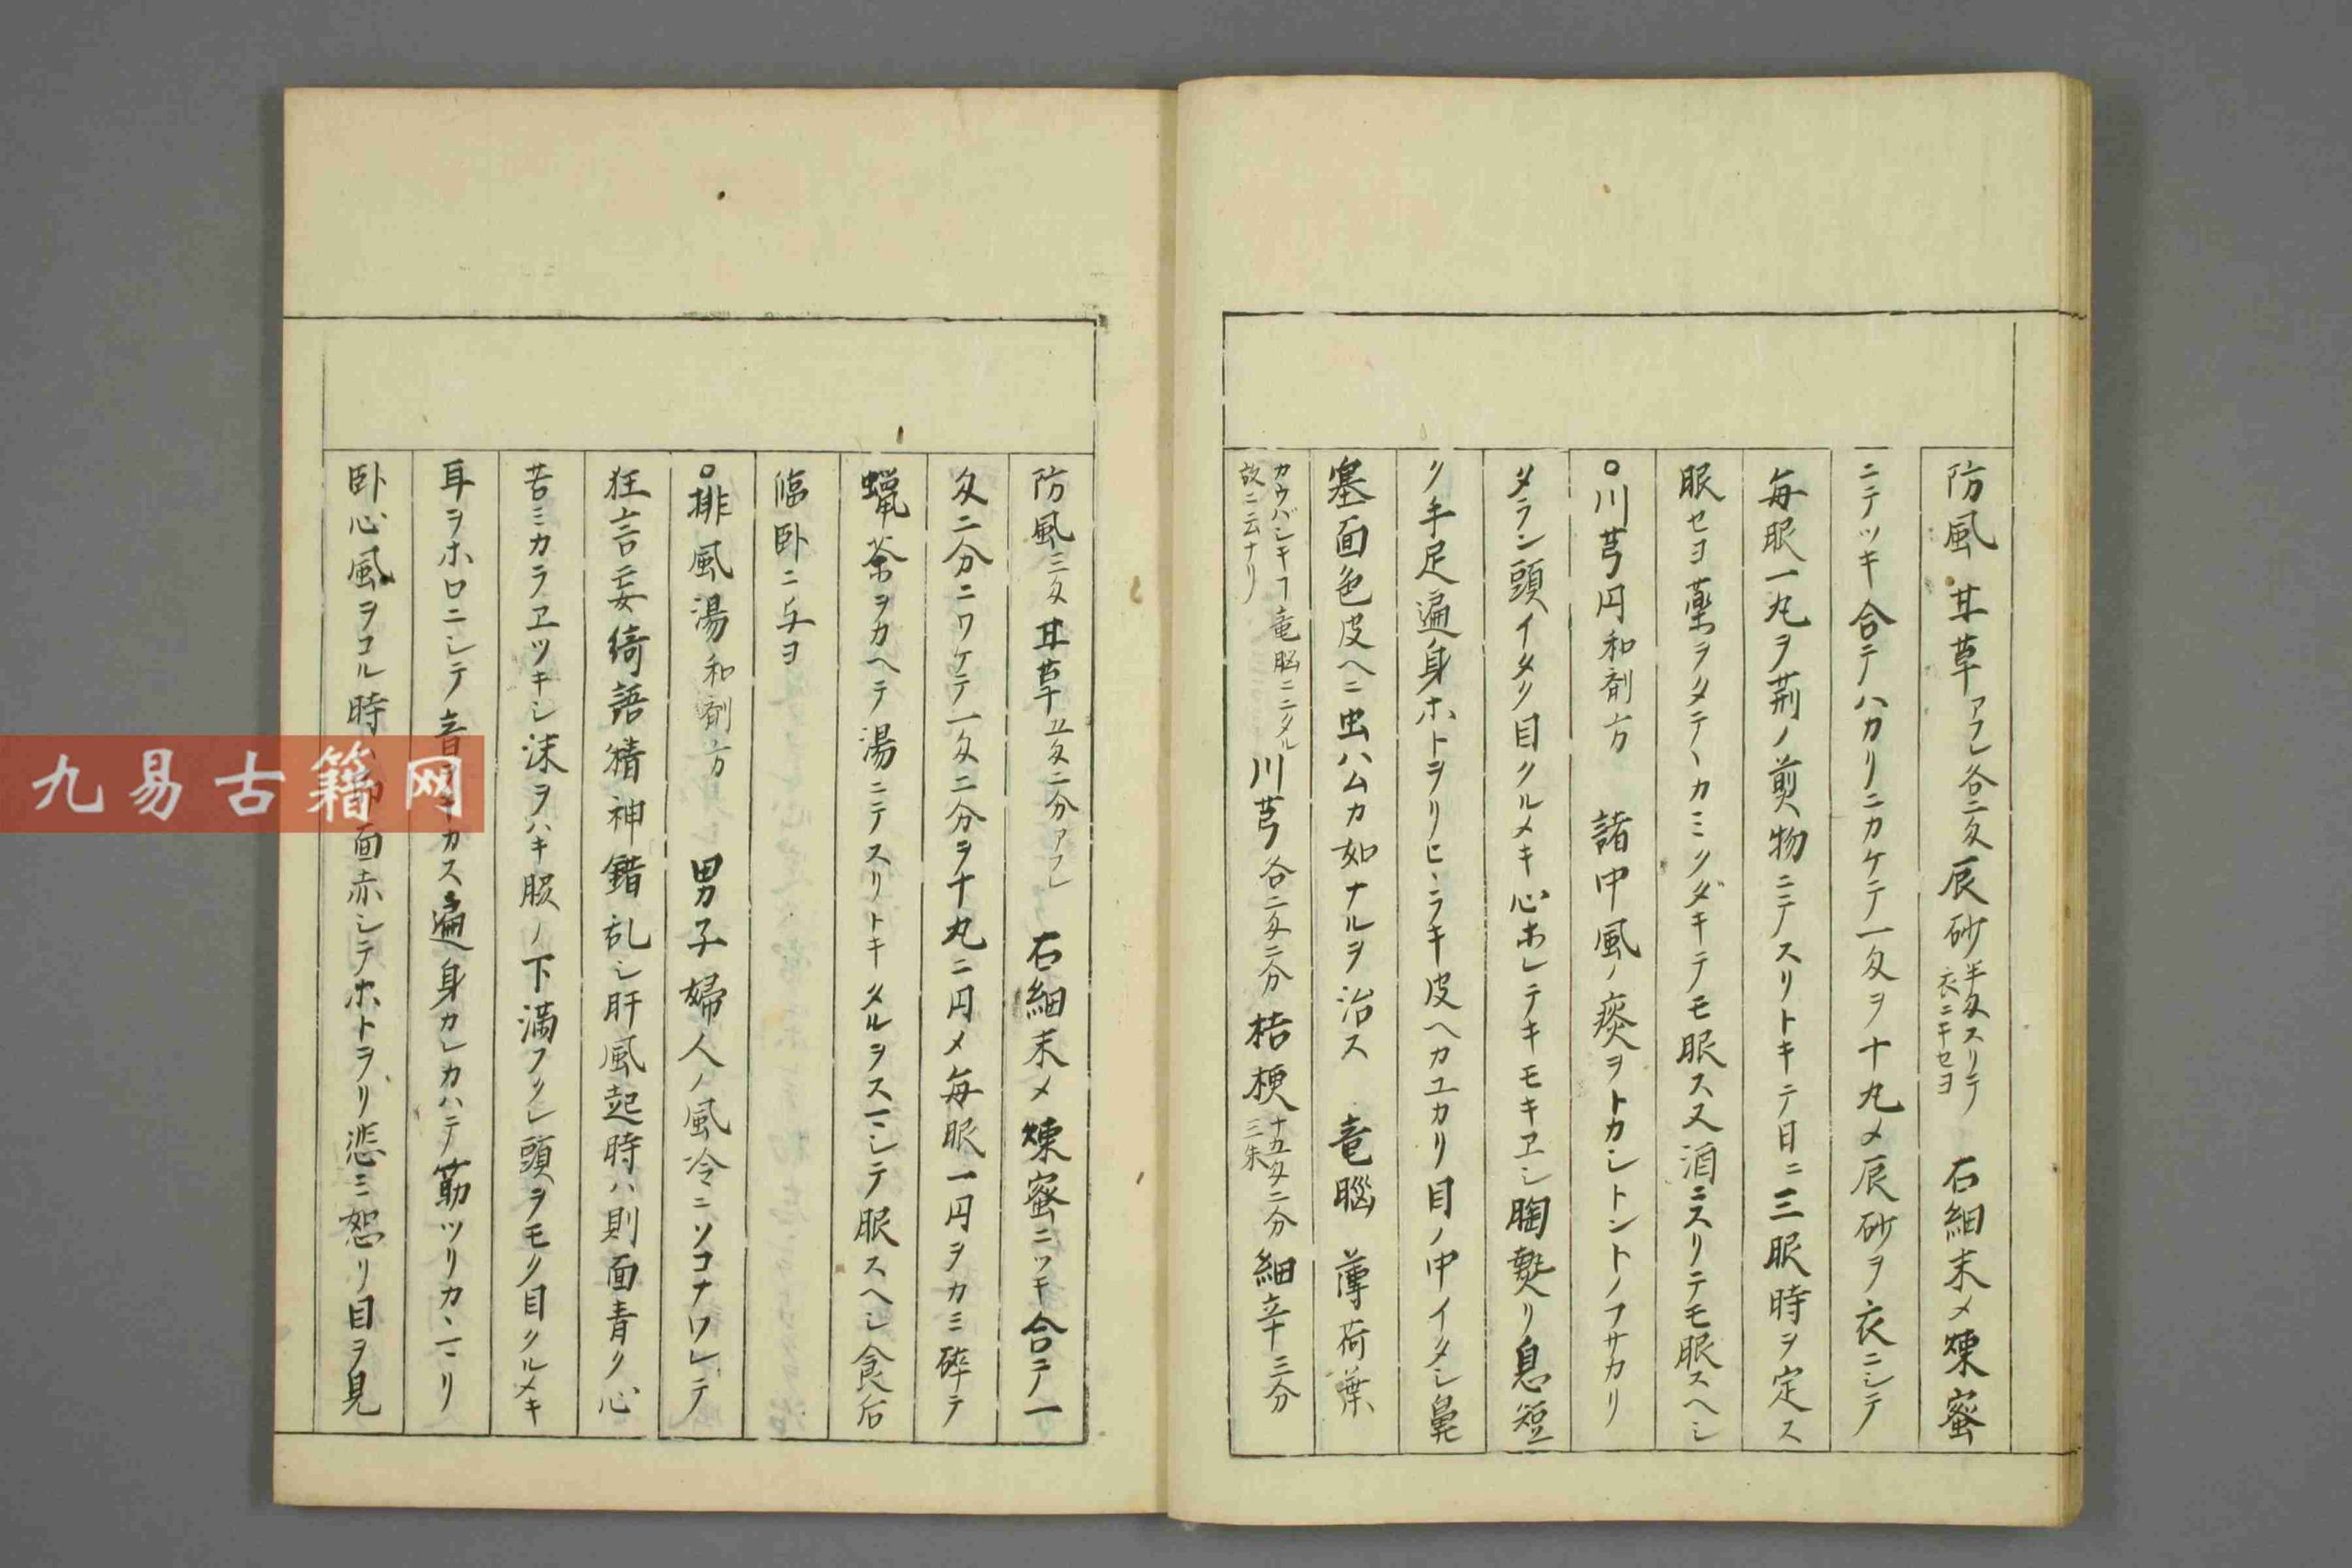 防風 甘草アフレ各二匁 辰砂半匁スリテ衣ニキセヨ 右細末メ煉蜜
ニテツキ合テハカリニカケテ一匁ヲ十丸メ辰砂ヲ衣ニシテ
毎服一丸ヲ荊ノ煎物ニテスリトキテ日ニ三服時ヲ定ス
服セヨ藥ヲタテヽカミクダキテモ服ス又酒ニスリテモ服スヘシ
○川芎円和剤方 諸中風ノ痰ヲトカシトントノフサカリ
タラン頭イタク目クルメキ心ホレテキモキヱシ胸熱リ息短
ク手足遍身ホトヲリヒヽラキ皮ヘカユカリ目ノ中イタシ鼻
塞面色皮ヘニ虫ハムカ如ナルヲ治ス 竜腦 薄荷葉
カウバシキヿ竜脳ニニタル故ニ云ナリ 川芎各二匁二分 桔梗十五匁二分三朱 細辛三分
防風三匁 甘草五匁二分アフレ 右細末メ煉蜜ニツキ合テ一
匁二分ニワケテ一匁二分ヲ十丸ニ円メ毎服一円ヲカミ碎テ
蝋茶ヲカヘテ湯ニテスリトキタルヲスヽシテ服スヘシ食后
臨卧ニ与ヨ
○排風湯和剤方 男子婦人ノ風冷ニソコナワレテ
狂言妄綺語精神錯乱シ肝風起時ハ則面青ク心
苦ミカラヱツキシ沫ヲハキ腋ノ下満フクレ頭ヲモク目クルメキ
耳ヲホロニシテ音ヲキカス遍身カレカハテ筋ツリカヽマリ
卧心風ヲコル時ハ則面赤シテホトヲリ悲ミ恕リ目ヲ見
九易古籍网